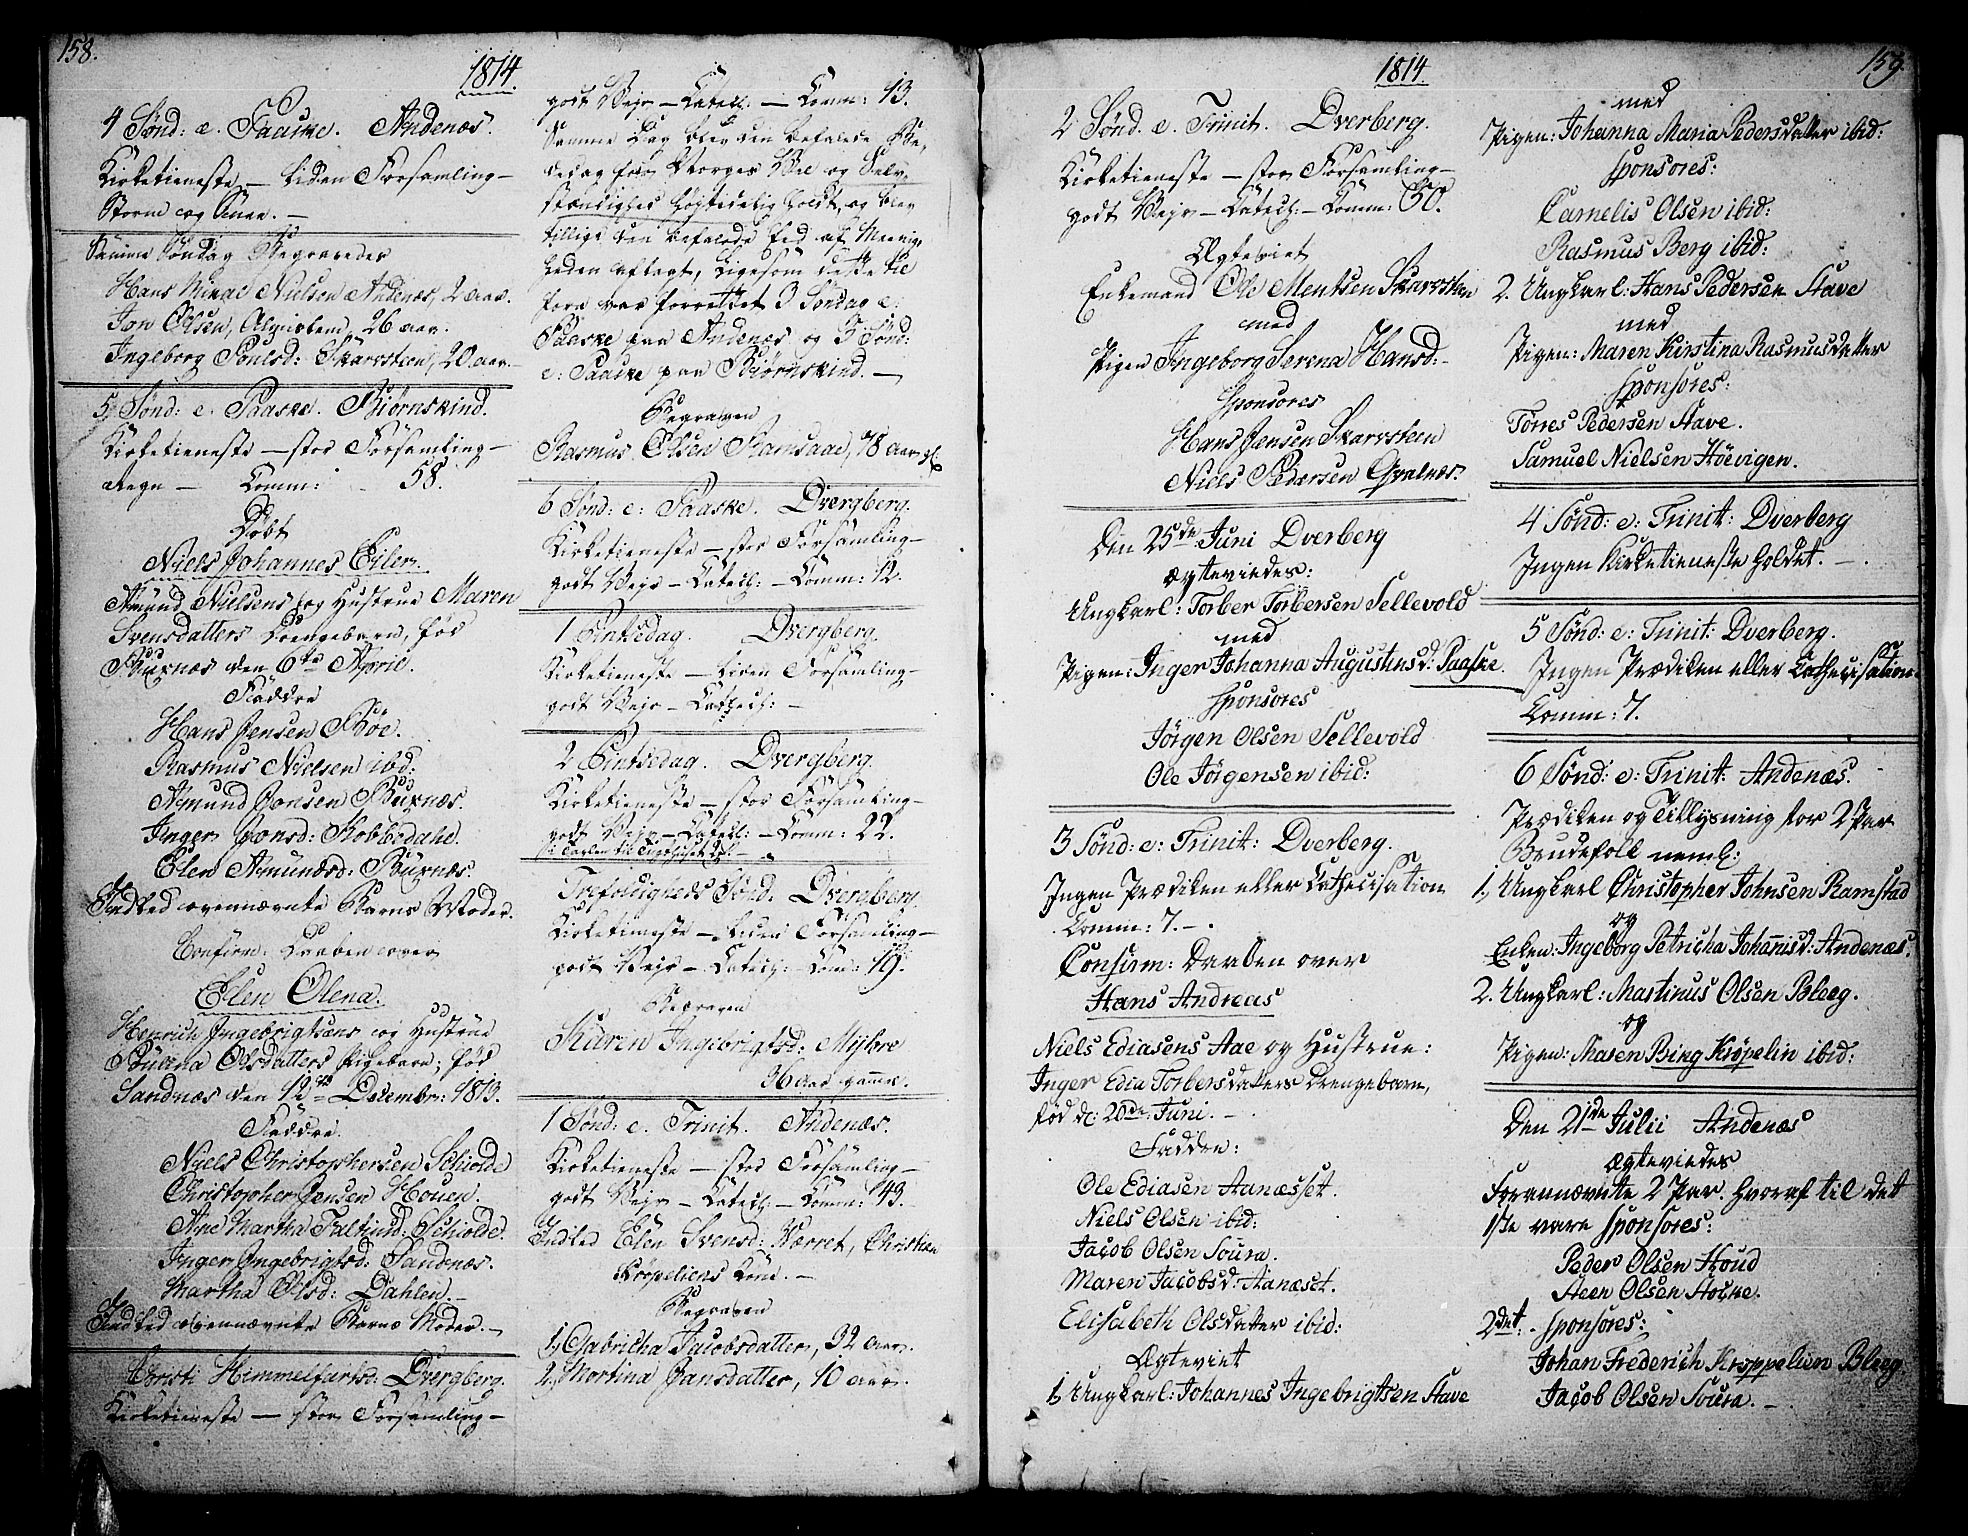 158.
1814.
4 Sønd: e. Paaske. Andenæs.
Kirketieneste – liden Forsamling –
Storm og Snee. –
Samme Søndag Begravedes
Hans Mikal Nielsen Andenæs, 2 aar.
Jon Olsen, 26 aar.
Ingeborg Poulsd: Skarvsteen, 20 aar. –
5 Sønd: e. Paaske. Biørnskind.
Kirketieneste – stor Forsamling –
Regn – Comm: 58.
Døbt
Niels Johannes Eiler.
Amund Nielsens og Hustrue Maren
Svensdatters Drengebarn, fød
Buxnæs den 6te April.
Faddre
Hans Jensen Bøe.
Rasmus Nielsen ibd:
Amund Jonsen Buxnæs.
Inger Jonsd: Kobbedahl.
Elen Amundsd: Buxnæs.
Indled ovennævnte Barns Moder.
Confirm: Daaben over
Elen Olena.
Henrich Ingebrigtsens og Hustrue
Olsdatters Pigebarn; fød
Sandnæs den 12te Decembr: 1813.
Faddre.
Niels Christophersen Schiolde
Christopher Jensen Houen.
Ane Martha Schiolde.
Inger Ingebrigtsd: Sandnæs.
Martha Olsd: Dahlen. –
Indled ovennævnte Barns Moder. –
Christi Himmelfartsd: Dvergberg.
Kirketieneste – stor Forsamling –
godt Vejr – Catech: – Comm: 13.
Samme Dag blev den befalede Be-
dedag for Norges Vel og Selv-
stændighed høytidelig holdt, og blev
tillige den befalede Eed af Meenig-
heden aflagt, ligesom dette til
forn var forrettet 3 Søndag e:
Paaske paa Andenæs og 5 Sønd:
e: Paaske paa Biørnskind. –
Begraven
Rasmus Olsen Ramsaae, 78 aar gl.
6 Sønd: e: Paaske. Dvergberg.
Kirketieneste – stor Forsamling –
godt Vejr – Catech: – Comm: 12.
1 Pintsedag. Dvergberg.
Kirketieneste – liden Forsamling –
godt Vejr – Catech: –
2 Pintsedag. Dvergberg.
Kirketieneste – stor Forsamling –
godt Vejr – Catech: – Comm: 22.
Trefoldigheds Sønd. Dvergberg.
Kirketieneste – liden Forsamling –
godt Vejr – Catech: Com: 19.
Begraven
Karen Ingebrigtsd: Myhre
36 aar gammel.
1 Sønd: e. Trinit. Andenæs.
Kirketieneste – stor Forsamling –
godt Vejr – Catech – Comm: 43.
Indled Elen Svensd: Værret, Christian
Krøpeliens Kone. –
Begraven
1, Gabricha Jacobsdatter, 32 aar.
2, Mortina Jansdatter, 10 aar.
159.
1814
2 Sønd. e. Trinit. Dverberg.
Kirketieneste – stor Forsamling –
godt Vejr – Catech: – Comm: 50.
Ægteviet
Enkemand Ole Mentsen Skarvstien
med
Pigen Ingeborg Serena Hansd: –
Sponsores
Hans Jensen Skarvsteen
Niels Pedersen Gvalnæs.
Den 25de Juni Dverberg
Ægteviedes:
Ungkarl: Torber Torbersen Sellevold
med
Pigen: Inger Johanna Augustinsd: Paaske.
Sponsores
Jörgen Olsen Sellevold
Ole Jörgensen ibid:
3 Sønd: e: Trinit: Dverberg.
Ingen Prædiken eller Cathecisation
Comm: 7. – .
Confirm: Daaben over
Hans Andreas
Niels Ediasens Aae og Hustrue:
Inger Edia Torbersdatters Drengebarn,
fød d: 20de Juni. –
Faddere:
Ole Ediasen Aanæsset.
Niels Olsen ibid:
Jacob Olsen Soura.
Maren Jacobsd: Aanæset.
Elisabeth Olsdatter ibid:
Ægteviet
1, Ungkarl: Johannes Ingebrigtsen Stave
med
Pigen: Johanna Maria Pedersdatter ibid:
Sponsores:
Carnelis Olsen ibid:
Rasmus Berg ibid:
2. Ungkarl: Hans Pedersen Stave
med
Pigen: Maren Kirstina Rasmusdatter
Sponsores:
Torres Pedersen Stave.
Samuel Nielsen Höevigen.
4 Sønd: e: Trinit: Dverberg
Ingen Kirketieneste holdet. – .
5 Sønd: e: Trinit: Dverberg.
Ingen Prædiken eller Cathecisation
Comm: 7.
6 Sønd: e: Trinit: Andenæs.
Prædiken og Tillysning for 2 Par
Brudefolk neml:
1, Ungkarl Christopher Johnsen Ramstad
og
Enken: Ingeborg Petricha Johannisd: Andenæs.
2. Ungkarl: Martinus Olsen Bleeg.
og
Pigen: Maren Bing Krøpelin ibid:
Den 21de Julii Andenæs
Ægteviedes
Forannævnte 2 Par. hvoraf til det
1ste vare Sponsores:
Peder Olsen Houd
Steen Olsen Stocke.
2det: – Sponsores:
Johan Frederich Kroppelien Bleeg.
Jacob Olsen Soura. –